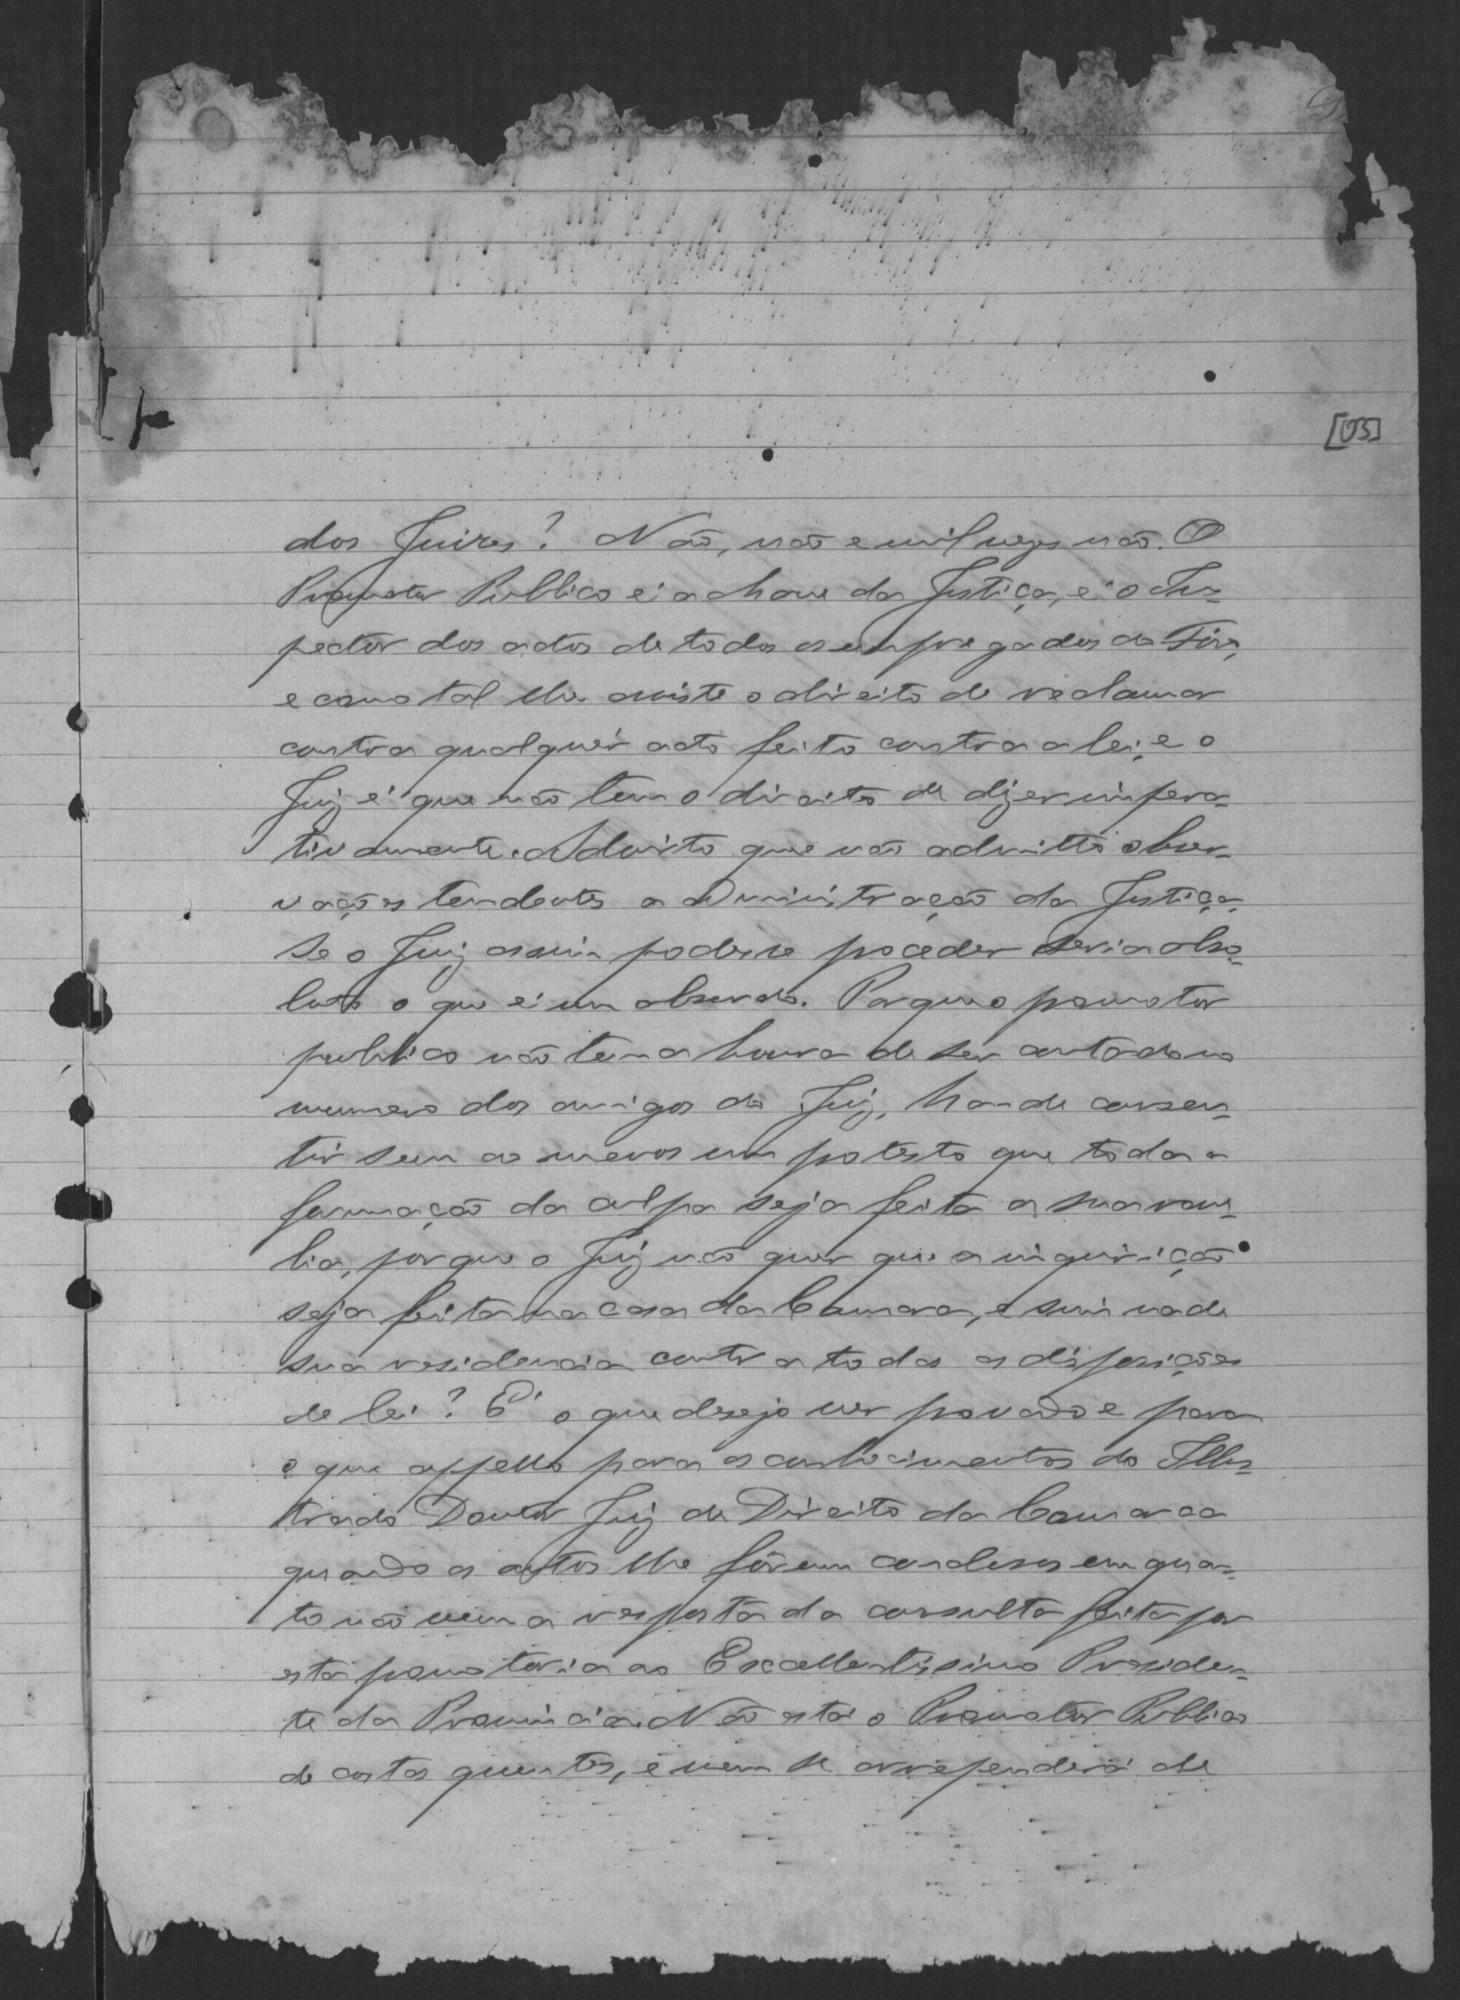 [05]
dos Juizes? Não, não e mil vezes não. O
Promotor Publico é a chave da Justiça, é o Ins-
pector dos actos de todos os empregados do Fôro,
e como tal lhe assiste o direito de reclamar
contra qualquér acto feito contra a lei, e o
Juiz é que não tem o direito de dizer impera-
tivamente. Advirto que não admitto obser-
vações tendentes a administração da Justiça.
Se o Juiz assim podesse proceder seria abso-
luto o que é um absurdo. Porque o promotor
publico não tem a honra de ser contado no
numero dos amigos do Juiz, ha de consen-
tir sem ao menos um protesto que toda a
formação da culpa seja feita a sua reve-
lia, porque o Juiz não quer que a inquirição
seja feita na casa da Camara, e sim na de
sua residencia contra todas as disposições
de lei? É o que desejo ver provado e para
o que appello para os conhecimentos do Illus-
trado Doutor Juiz de Direito da Comarca
quando os autos lhe fôrem conclusos em quan-
to não vem a resposta da consulta feita por
esta promotoria ao Excellentissimo Presiden-
te da Provincia. Não está o Promotor Publico
de costas quentes, e nem se arrependerá de